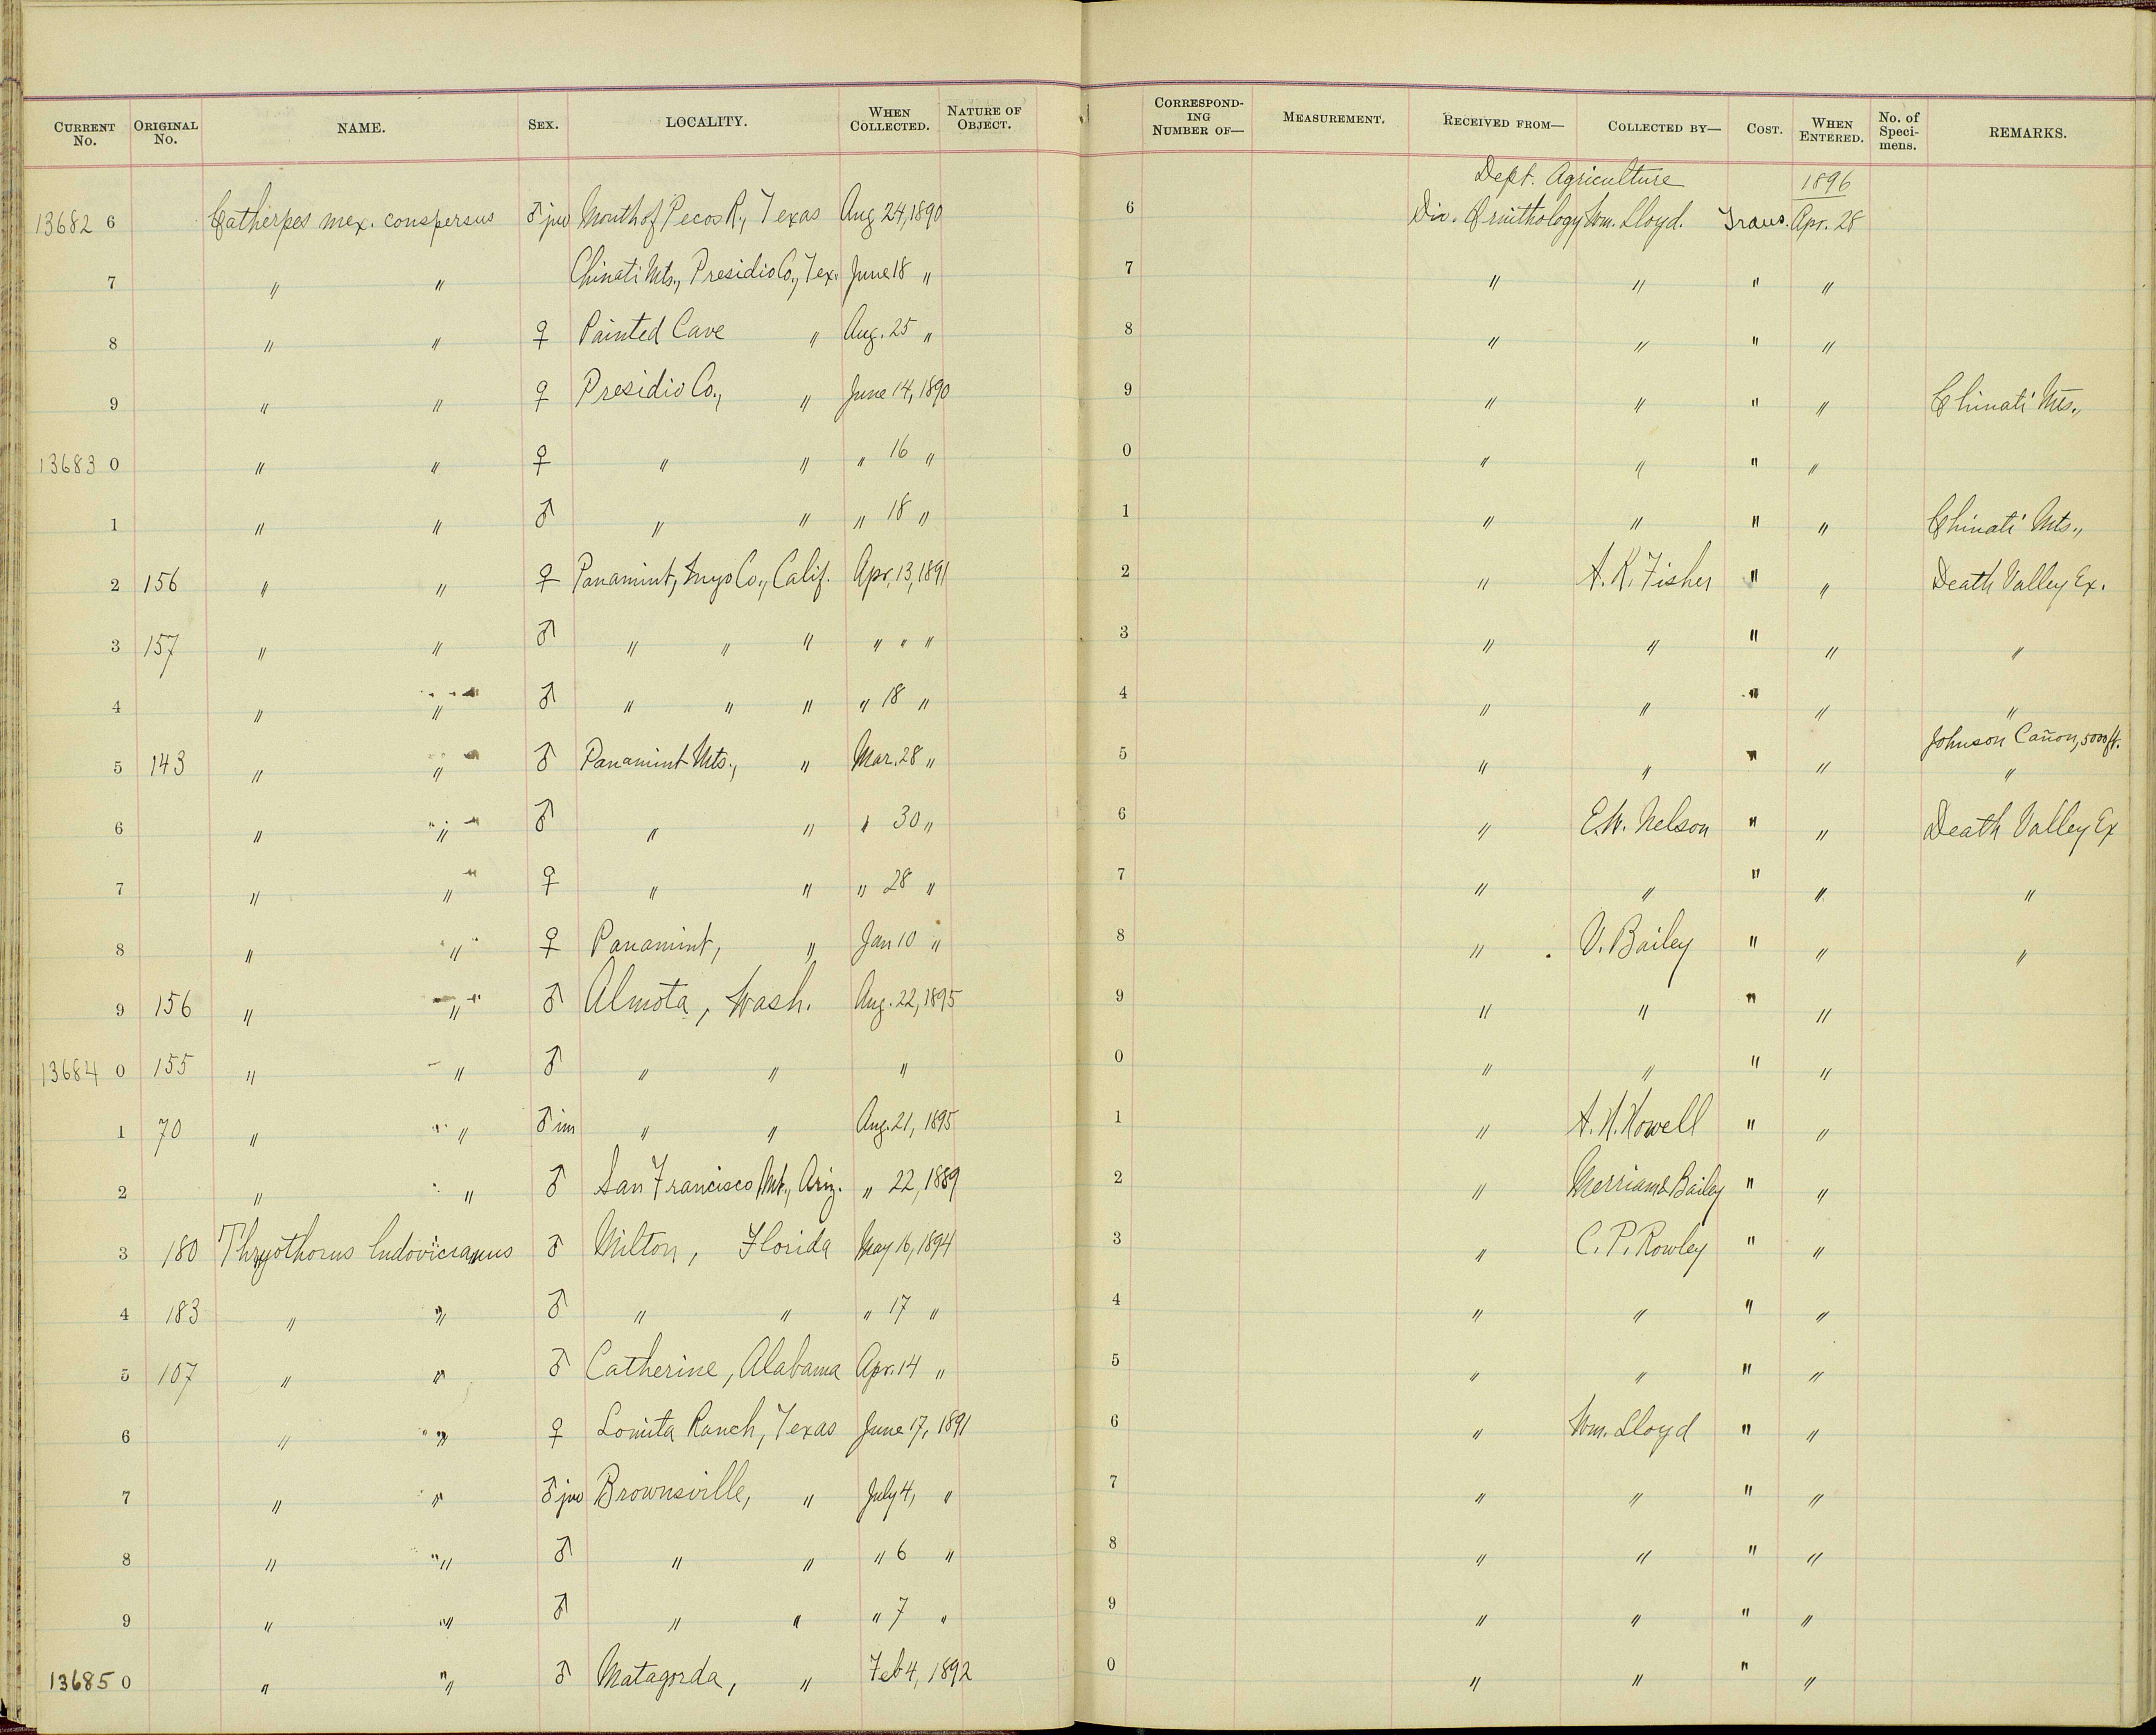 CURRENT No. ORIGINAL No. NAME. SEX. LOCALITY. WHEN COLLECTED. NATURE OF OBJECT. CORRESPONDING NUMBER OF— MEASUREMENT. RECEIVED FROM— COLLECTED BY— COST. WHEN ENTERED. No. of Specimens. REMARKS.
Dept. Agriculture 1896
13682 6 Catherpes mex. conspersus ♂ juv Mouth of Pecos R., Texas Aug 24, 1890 6 Div. Ornithology Wm. Lloyd. Trans. Apr. 28
7 " " Chinati Mts., Presidio Co., Tex. June 18 " 7 " " " "
8 " " ♀ Painted Cave " Aug. 25 " 8 " " " "
9 " " ♀ Presidio Co., " June 14, 1890 9 " " " " Chinati Mts.,
13683 0 " " ♀ " " " 16 " 0 " " " "
1 " " ♂ " " " 18 " 1 " " " " Chinati Mts.,
2 156 " " ♀ Panamint, Inyo Co., Calif. Apr. 13, 1891 2 " A. K. Fisher " " Death Valley Ex.
3 157 " " ♂ " " " " " " 3 " " " " "
4 " " ♂ " " " " 18 " 4 " " " " "
Johnson Cañon, 5000 ft.
5 143 " " ♂ Panamint Mts., " Mar. 28 " 5 " " " " "
6 " " ♂ " " " 30 " 6 " E. W. Nelson " " Death Valley Ex
7 " " ♀ " " " 28 " 7 " " " " "
8 " " ♀ Panamint, " Jan 10 " 8 " V. Bailey " " "
9 156 " " ♂ Almota, Wash. Aug. 22, 1895 9 " " " "
13684 0 155 " " ♂ " " " 0 " " " "
1 70 " " ♂ im " " Aug. 21, 1895 1 " A. H. Howell " "
2 " " ♂ San Francisco Mt., Ariz. " 22, 1889 2 " Merriam & Bailey " "
3 180 Thryothorus ludovicianus ♂ Milton, Florida May 16, 1894 3 " C. P. Rowley " "
4 183 " " ♂ " " " 17 " 4 " " " "
5 107 " " ♂ Catherine, Alabama Apr. 14 " 5 " " " "
6 " " ♀ Lomita Ranch, Texas June 17, 1891 6 " Wm. Lloyd " "
7 " " ♂ juv Brownsville, " July 4, " 7 " " " "
8 " " ♂ " " " 6 " 8 " " " "
9 " " ♂ " " " 7 " 9 " " " "
13685 0 " " ♂ Matagorda, " Feb 4, 1892 0 " " " "